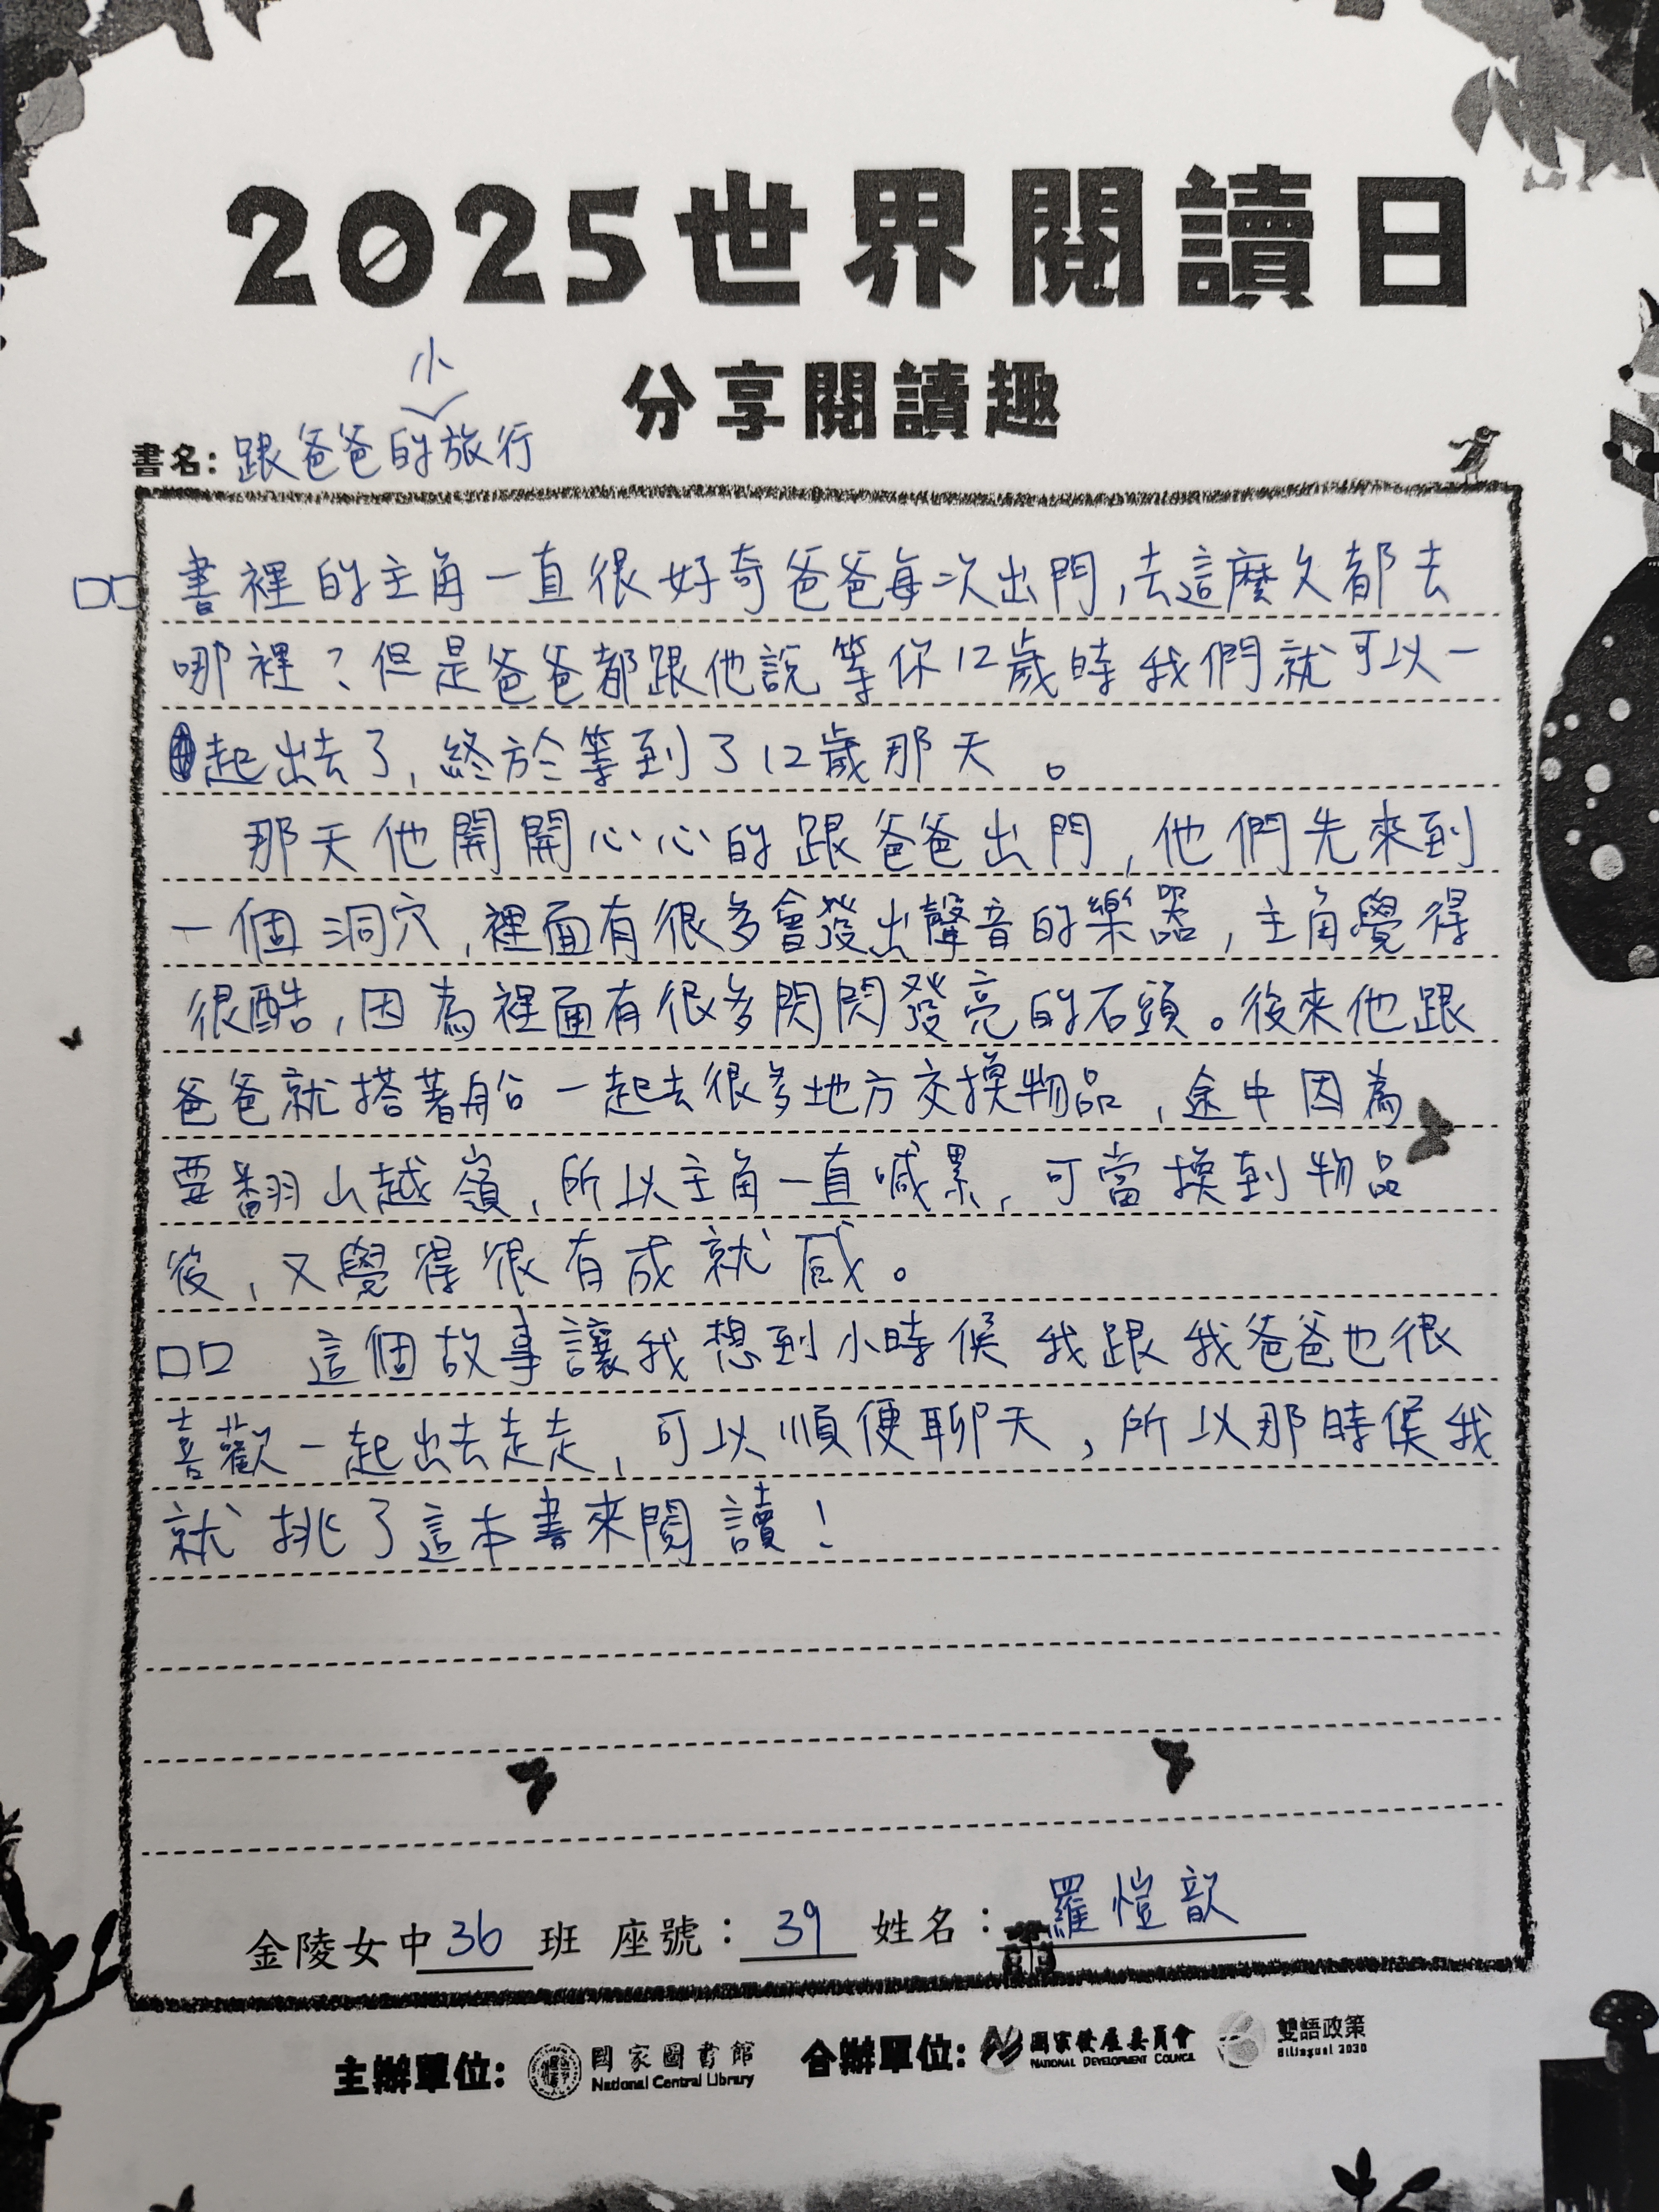 2025世界閱讀日
分享閱讀趣
小
書名：跟爸爸的旅行
□□書裡的主角一直很好奇爸爸每次出門，去這麼久都去
哪裡？但是爸爸都跟他說等你12歲時我們就可以一
起出去了，終於等到了12歲那天。
那天他開開心心的跟爸爸出門，他們先來到
一個洞穴，裡面有很多會發出聲音的樂器，主角覺得
很酷，因為裡面有很多閃閃發亮的石頭。後來他跟
爸爸就搭著船一起去很多地方交換物品，途中因為
要翻山越嶺，所以主角一直喊累，可當換到物品
後，又覺得很有成就感。
□□ 這個故事讓我想到小時候我跟我爸爸也很
喜歡一起出去走走，可以順便聊天，所以那時候我
就挑了這本書來閱讀！
金陵女中36班 座號：39 姓名：羅愷歆
主辦單位：國家圖書館 National Central Library 合辦單位：國家發展委員會 NATIONAL DEVELOPMENT COUNCIL 雙語政策 Bilingual 2030